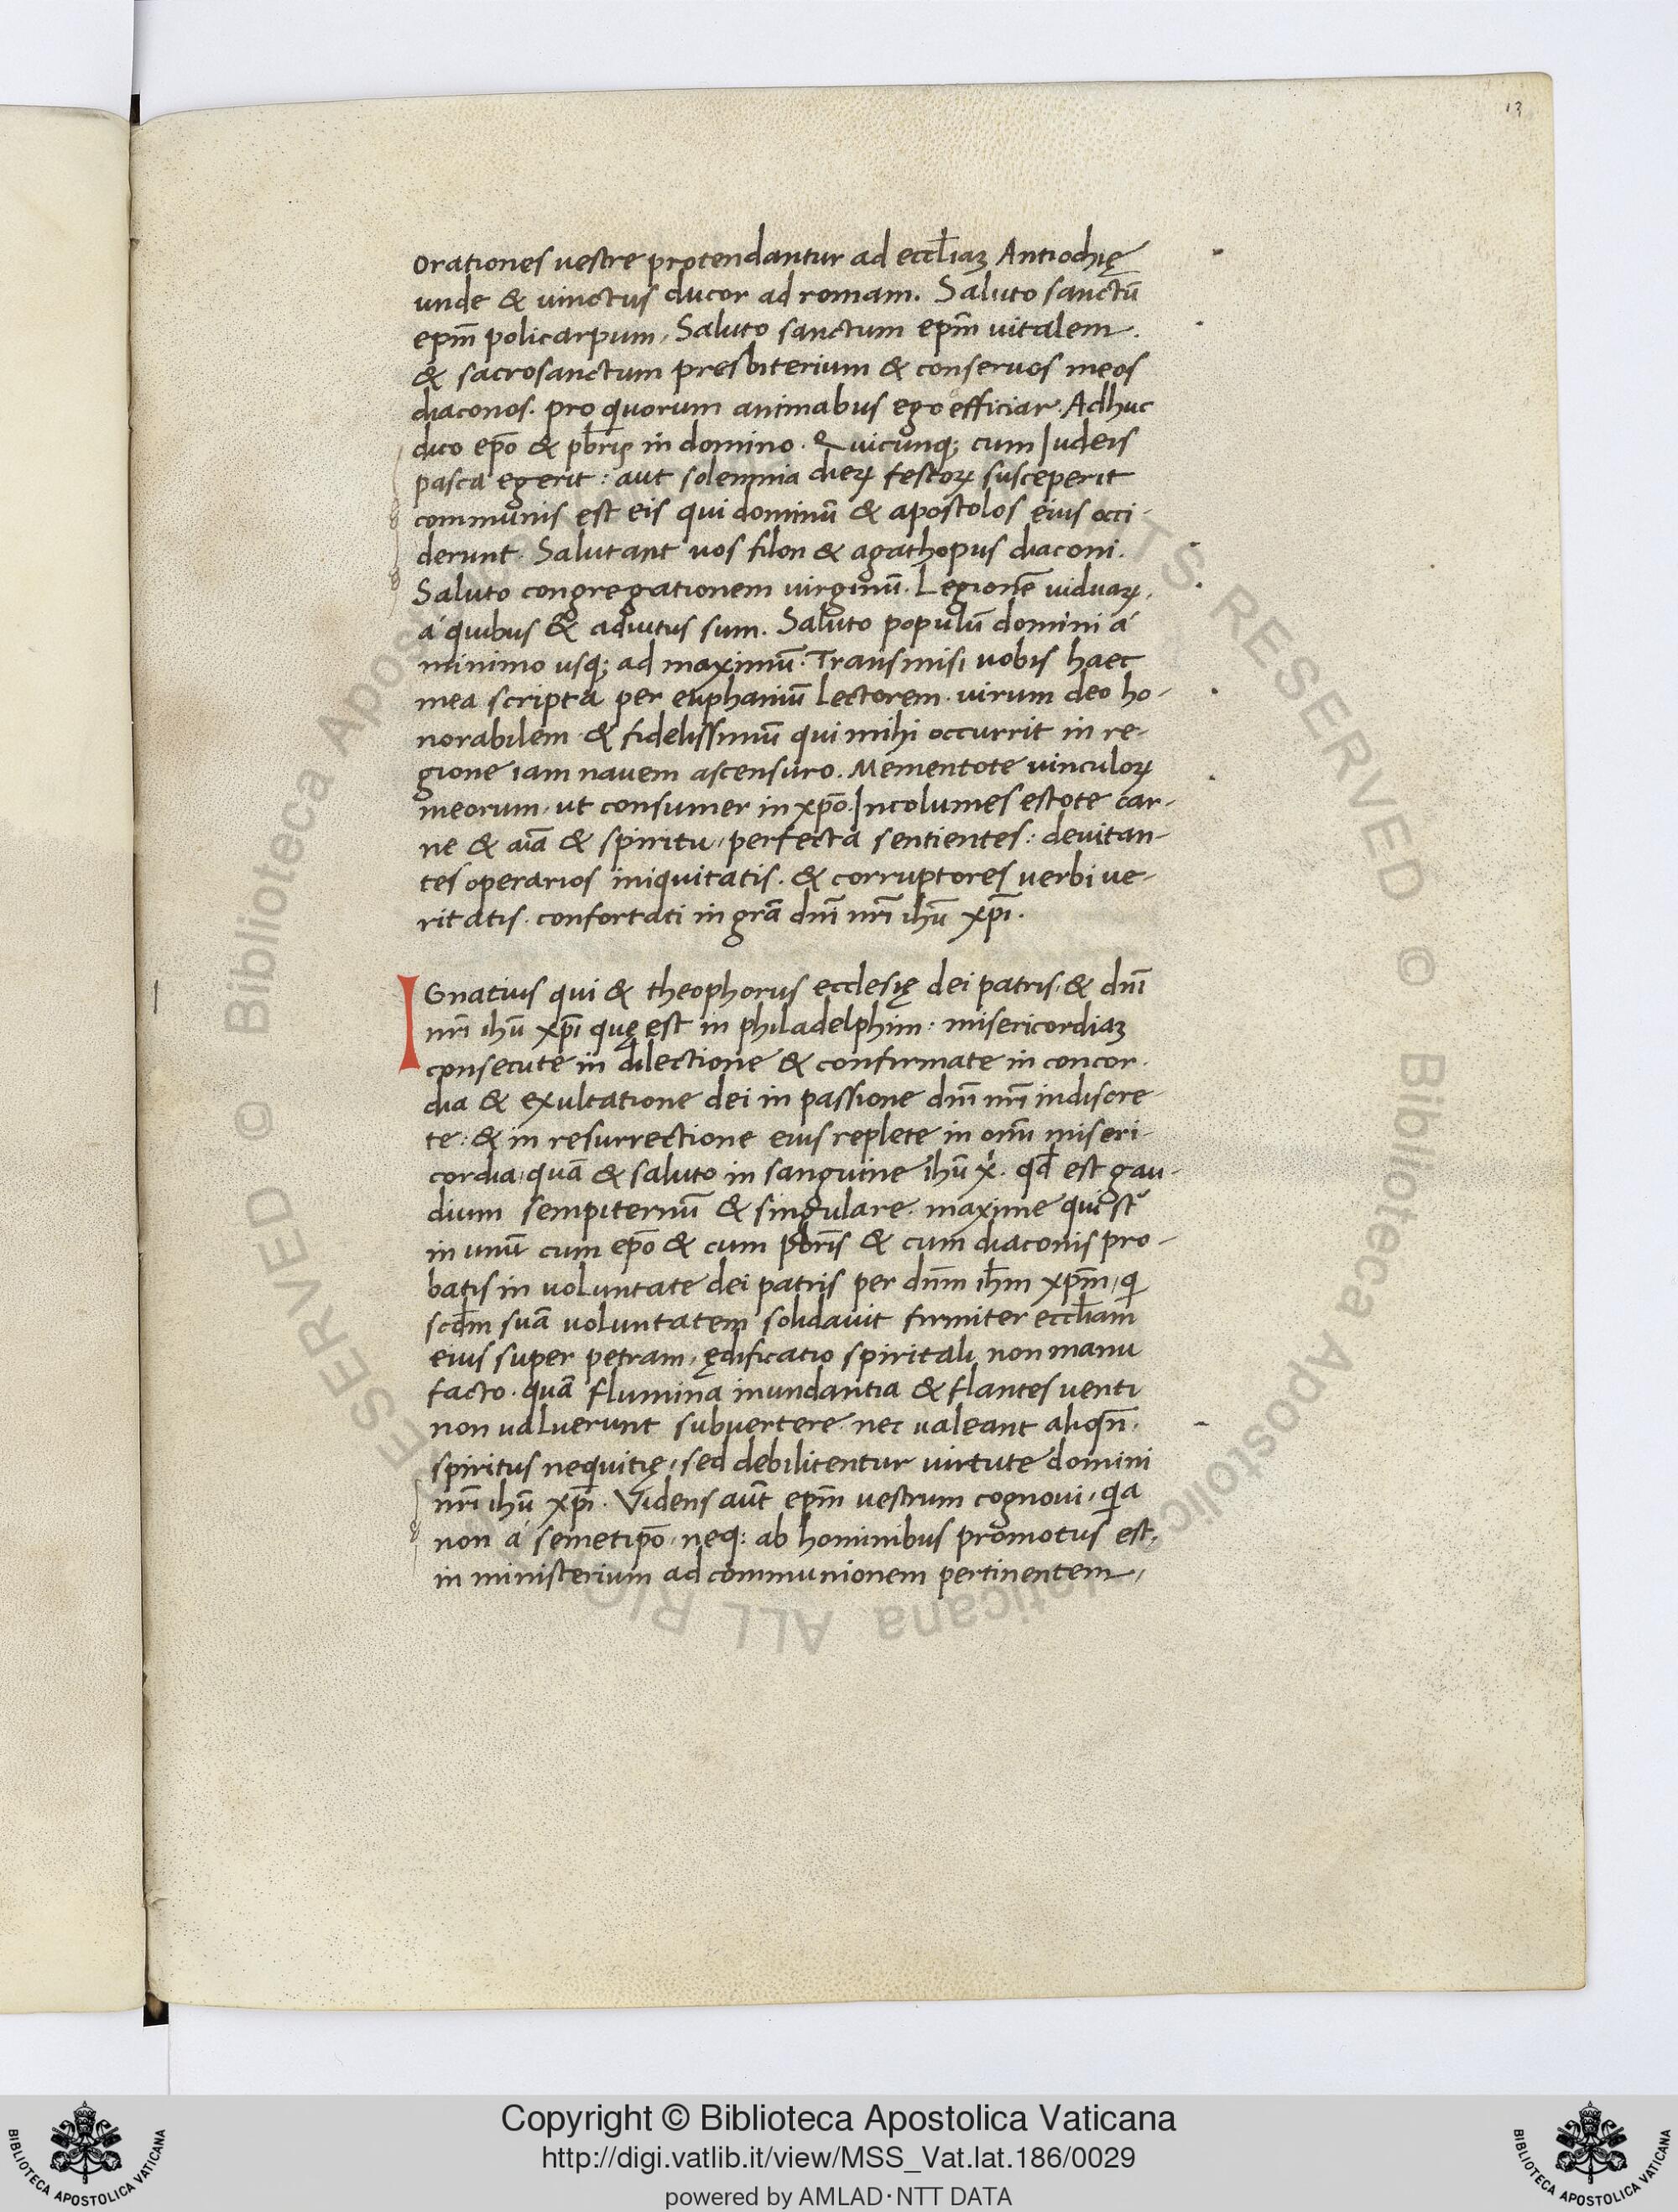 13
orationes uestre protendantur ad eccl̄iaꝫ Antiochię
unde & uinctus ducor ad romam. Saluto sanctū
ep̄m policarpum, Saluto sanctum ep̄m uitalem.
& sacrosanctum presbiterium & conseruos meos
diaconos. pro quorum animabus ego efficiar. Adhuc
dico ep̄o & pb̄ris in domino. Quicunq; cum Iudeis
pasca egerit: aut solemnia dieꝝ festoꝝ susceperit
communis est eis qui dominū & apostolos eius occi-
derunt. Salutant uos filon & agathopus diaconi.
Saluto congregationem uirginū. Legionē uiduaꝝ,
á quibus & adiutus sum. Saluto populū domini á
minimo usq; ad maximū. Transmisi uobis haec
mea scripta per euphaniū lectorem. uirum deo ho-
norabilem & fidelissimū qui mihi occurrit in re-
gione iam nauem ascensuro. Mementote uinculoꝝ
meorum, ut consumer in xp̄o. Incolumes estote car-
ne & aīa & spiritu, perfecta sentientes: deuitan-
tes operarios iniquitatis. & corruptores uerbi ue-
ritatis. confortati in grā dn̄i nr̄i ihū xp̄i.
IGnatius qui & theophorus ecclesię dei patris, & dn̄i
nr̄i ihū xp̄i quę est in philadelphim: misericordiaꝫ
consecute in dilectione & confirmate in concor-
dia & exultatione dei in passione dn̄i nr̄i indiscre
te: & in resurrectione eius replete in om̄i miseri-
cordia, quā & saluto in sanguine ihū x̄. qd̄ est gau-
dium sempiternū & singulare. maxime qui st̄
in unū cum ep̄o & cum pbr̄is & cum diaconis pro-
batis in uoluntate dei patris per dn̄m ih̄m xp̄m, q̄
scd̄m suā uoluntatem solidauit firmiter eccl̄iam
eius super petram, ędificatio spiritali non manu
facto. quā flumina inundantia & flantes uenti
non ualuerunt subuertere. nec ualeant aliqn̄,
spiritus nequitię, sed debilitentur uirtute domini
nr̄i ihū xp̄i. Videns aūt ep̄m uestrum cognoui, qa
non á semetip̄o, neq: ab hominibus promotus est,
in ministerium ad communionem pertinentem,
© Biblioteca Apostolica Vaticana ALL RIGHTS RESERVED © Biblioteca Apostolica Vaticana ALL RIGHTS RESERVED
Copyright © Biblioteca Apostolica Vaticana
http://digi.vatlib.it/view/MSS_Vat.lat.186/0029
powered by AMLAD·NTT DATA
BIBLIOTECA APOSTOLICA VATICANA
BIBLIOTECA APOSTOLICA VATICANA